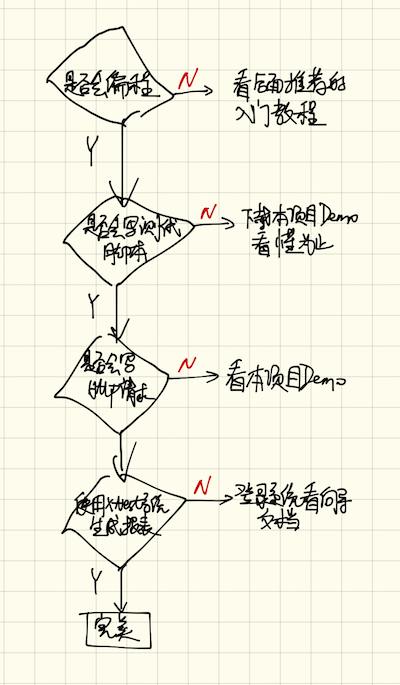 是否会编程
N
看后面推荐的
入门教程
Y
是否会写测试
脚本
N
下载本项目Demo
看懂为止
Y
是否会写
http请求
N
看本项目Demo
使用Xtest系统
生成报表
N
登录系统看向导
文档
Y
完美